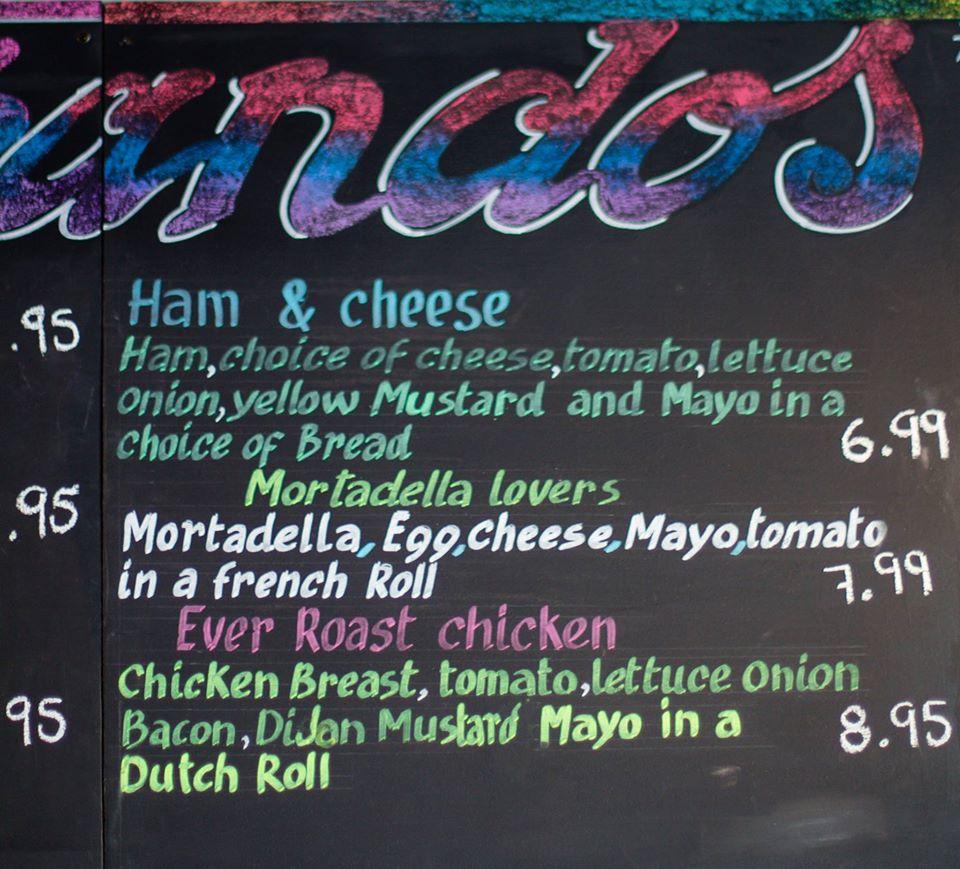 andos
Ham & cheese
.95
Ham, choice of cheese, tomato, lettuce
onion, yellow Mustard and Mayo in a
choice of Bread
6.99
Mortadella lovers
.95
Mortadella, Egg, cheese, Mayo, tomato
in a french Roll
7.99
Ever Roast chicken
Chicken Breast, tomato, lettuce onion
95
Bacon, DiJan Mustard Mayo in a
8.95
Dutch Roll